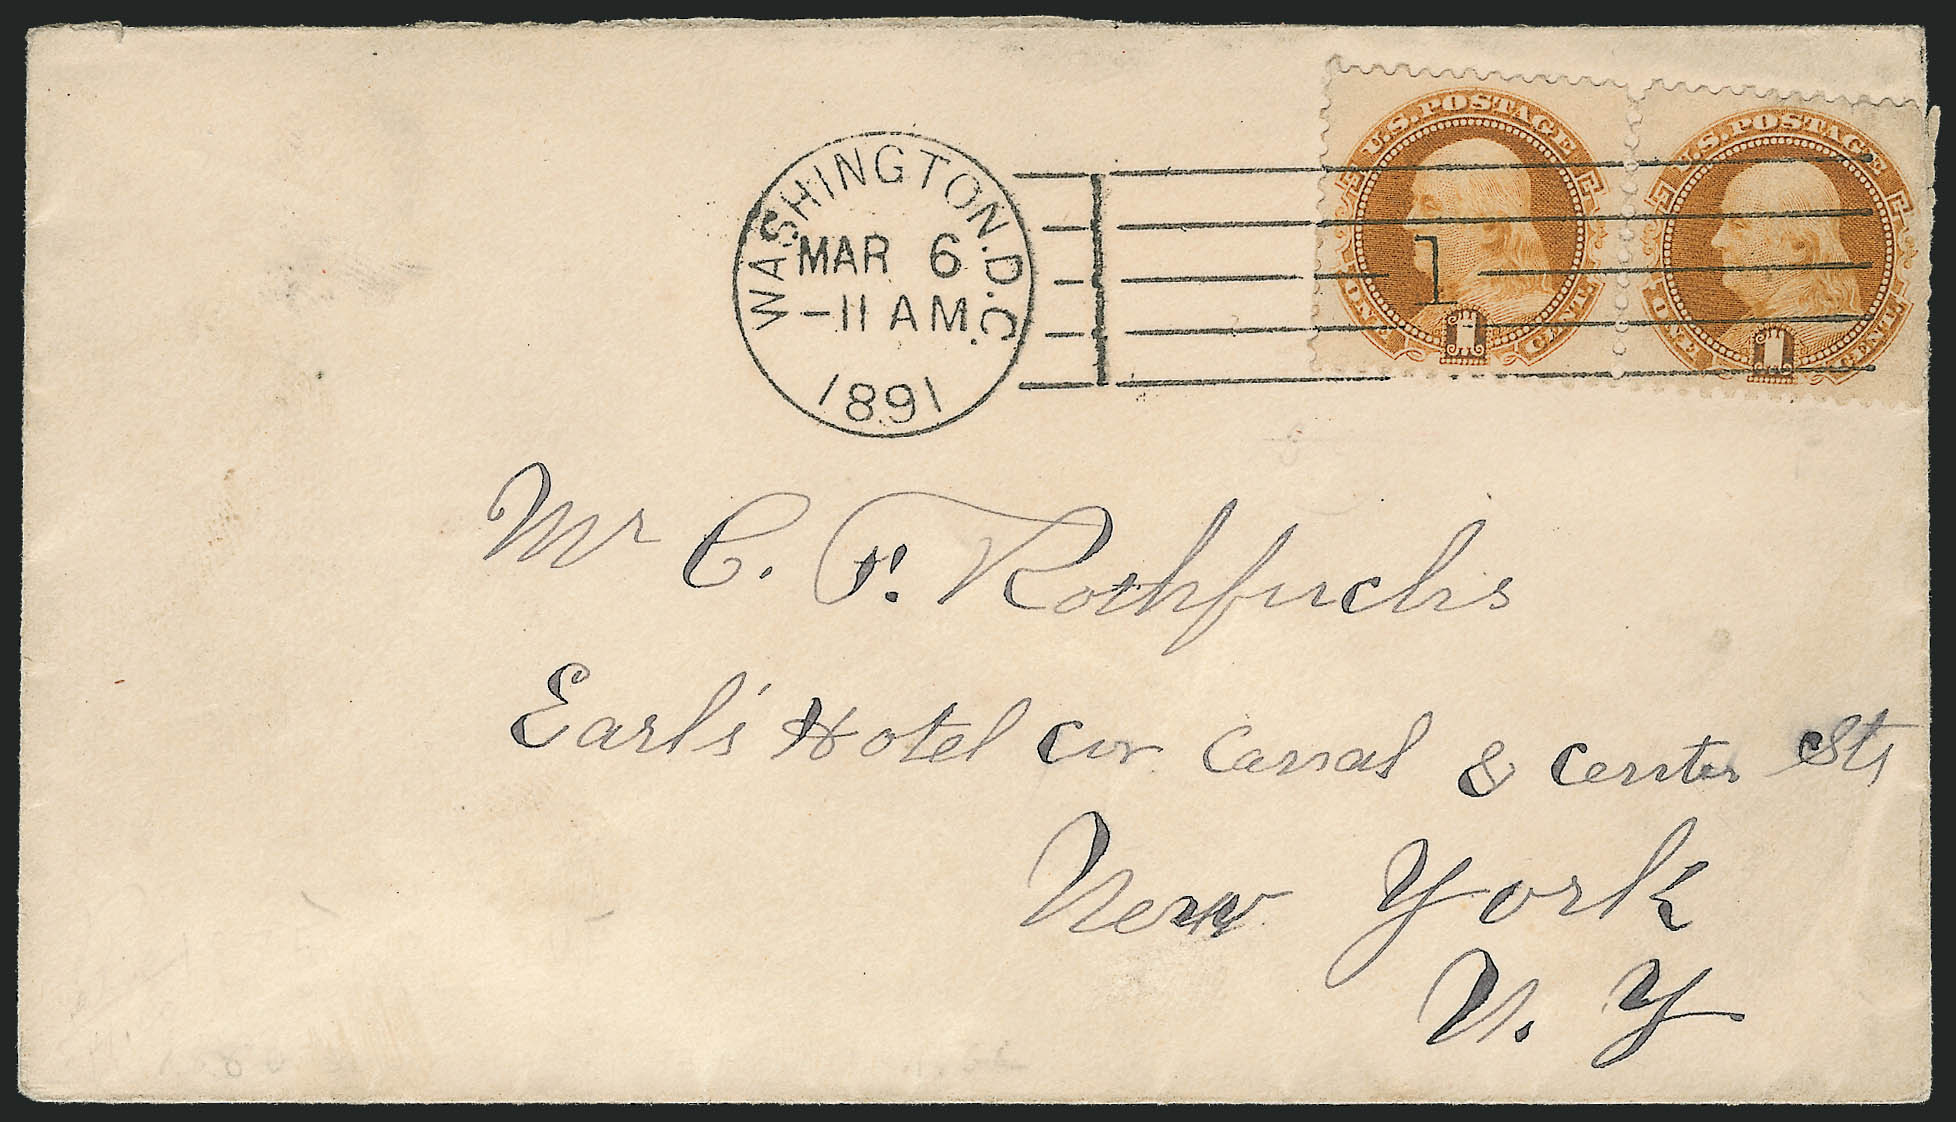 U.S. POSTAGE U.S. POSTAGE
WASHINGTON, D.C.
MAR 6
-11 AM
1891
1
ONE 1 CENT. ONE 1 CENT.
Mr C. F. Rothfuchs
Earl's Hotel cor Canal & Center Sts
New York
N. Y